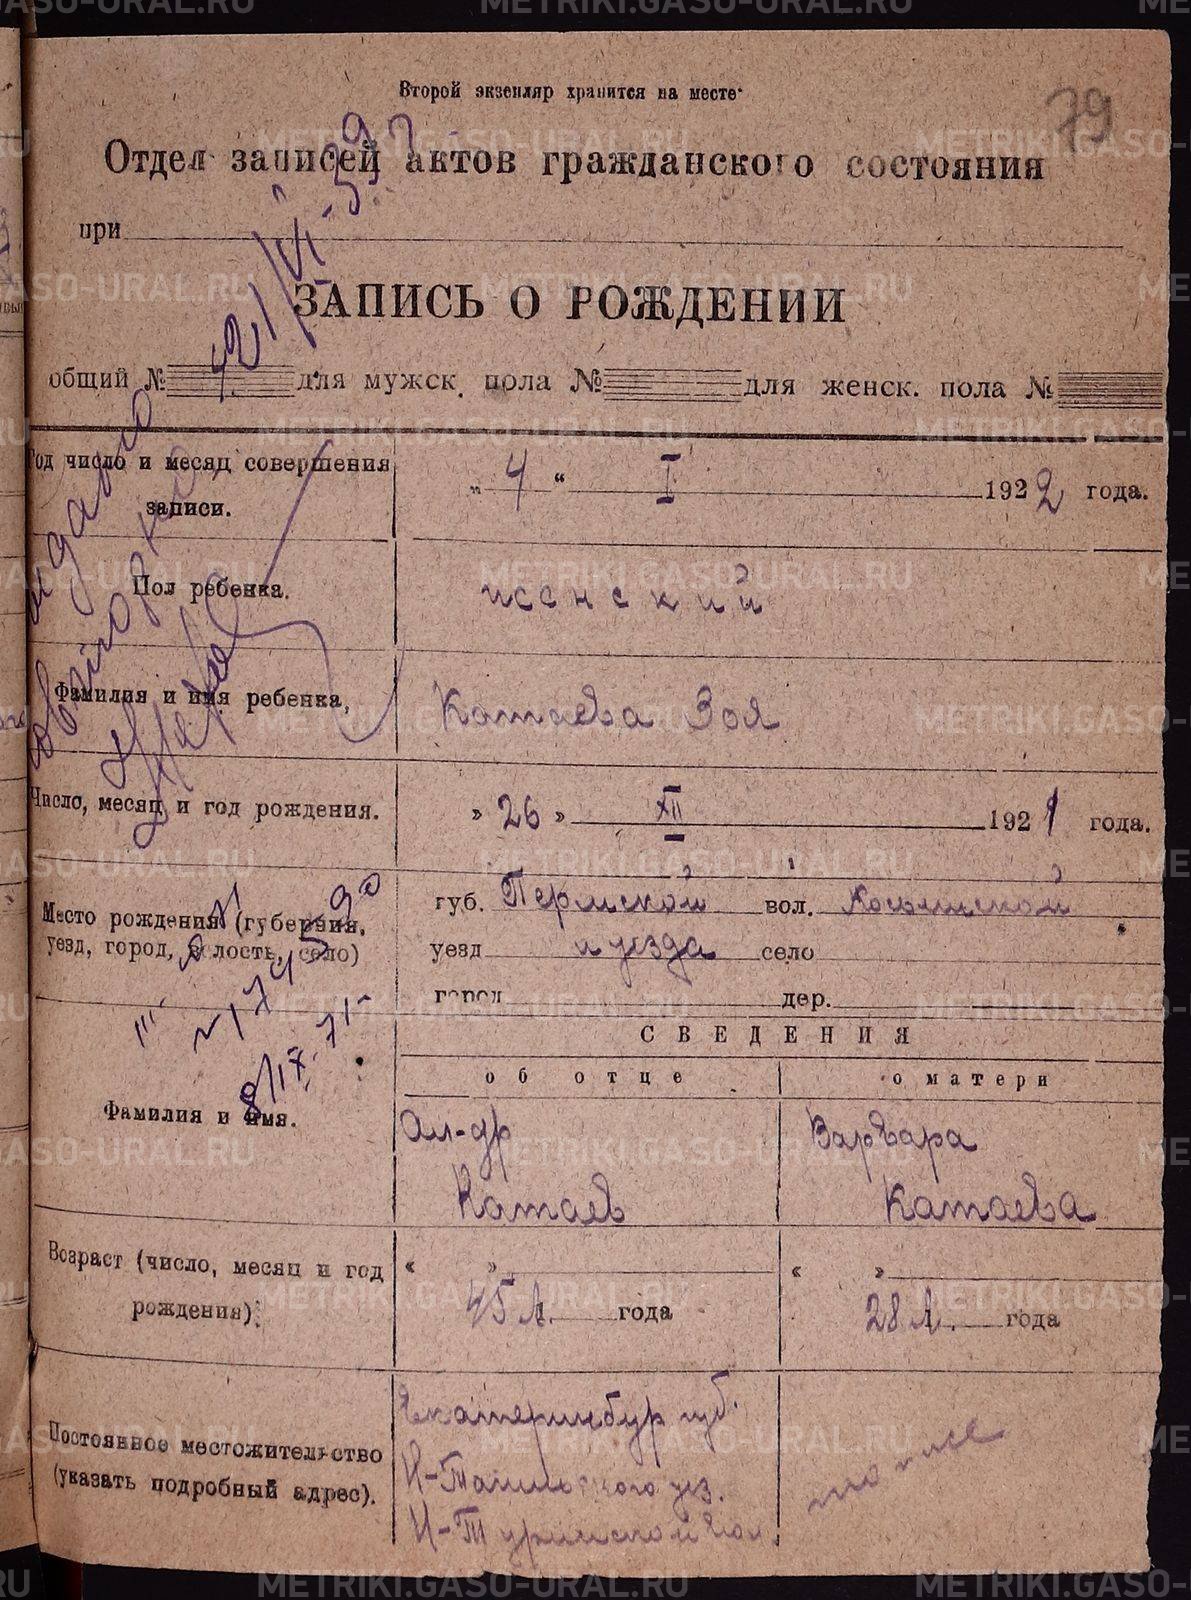 Второй экземпляр хранится на месте
79
Отдел записей актов гражданского состояния
при
ЗАПИСЬ О РОЖДЕНИИ
общий № для мужск. пола № для женск. пола №
Год число и месяц совершения записи.
„ 4 “ I 1922 года.
Пол ребенка.
женский
Фамилия и имя ребенка,
Катаева Зоя
Число, месяц и год рождения.
» 26 » XII 1921 года.
Место рождения (губерния, уезд, город, волость, село)
губ. Пермской вол.
уезд и уезда село
город дер.
СВЕДЕНИЯ
об отце о матери
Фамилия и имя.
Ал-др Варвара
Катаев Катаева
Возраст (число, месяц и год рождения).
« » « »
45 л. года 28 л. года
Постоянное местожительство (указать подробный адрес).
Екатеринбур губ.
Н-Тагильского уез.
Н-Туринской вол.
то же
METRIKI.GASO-URAL.RU